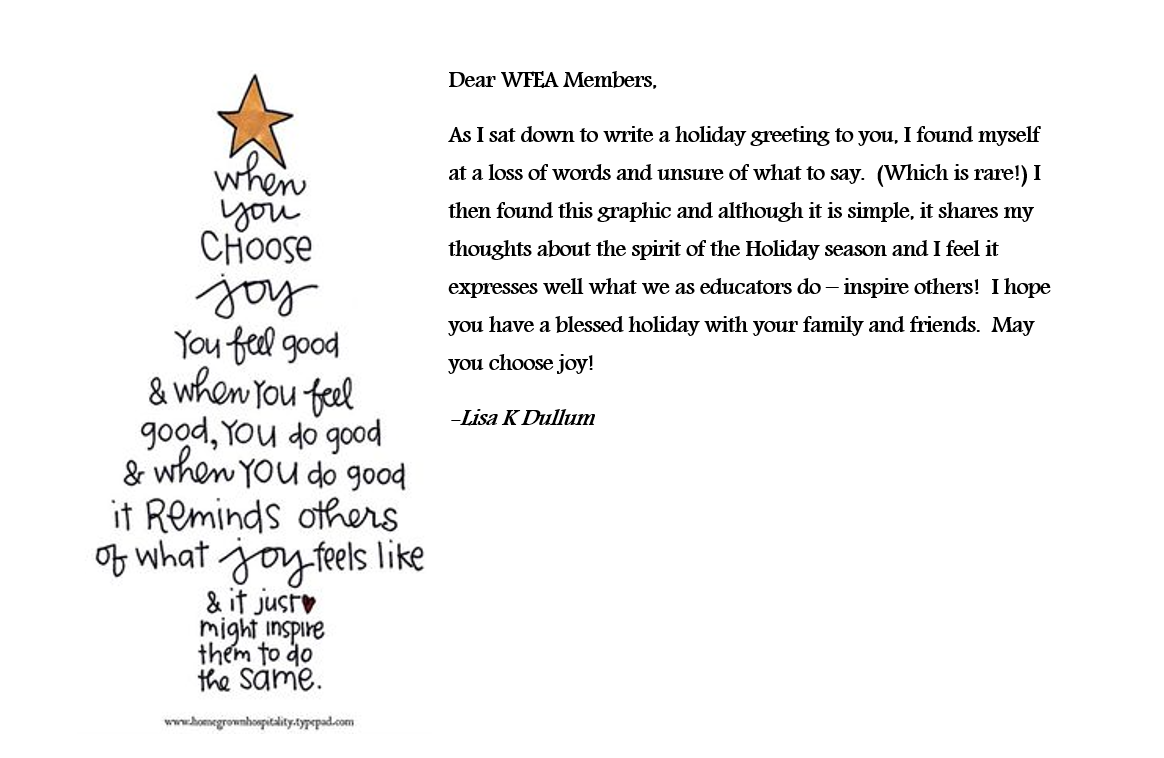 when
you
CHOOSE
joy
You feel good
& when You feel
good, YOU do good
& when YOU do good
it Reminds others
of what joy feels like
& it just
might inspire
them to do
the same.
www.homegrownhospitality.typepad.com
Dear WFEA Members,
As I sat down to write a holiday greeting to you, I found myself
at a loss of words and unsure of what to say.  (Which is rare!) I
then found this graphic and although it is simple, it shares my
thoughts about the spirit of the Holiday season and I feel it
expresses well what we as educators do – inspire others!  I hope
you have a blessed holiday with your family and friends.  May
you choose joy!
-Lisa K Dullum